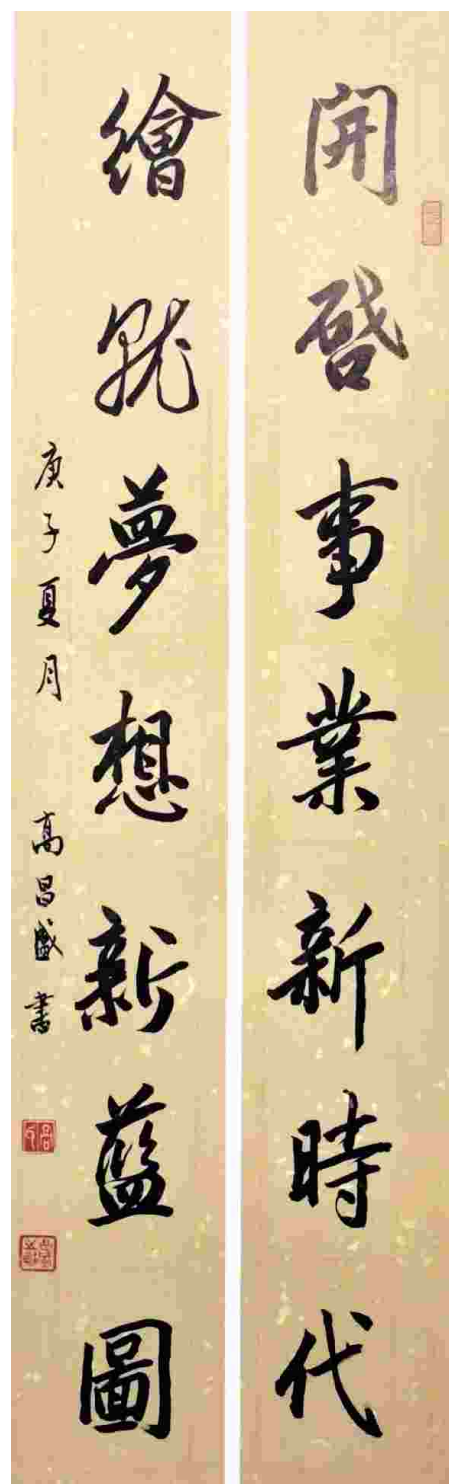 開啓事業新時代
繪就夢想新藍圖
庚子夏月 高昌盛書